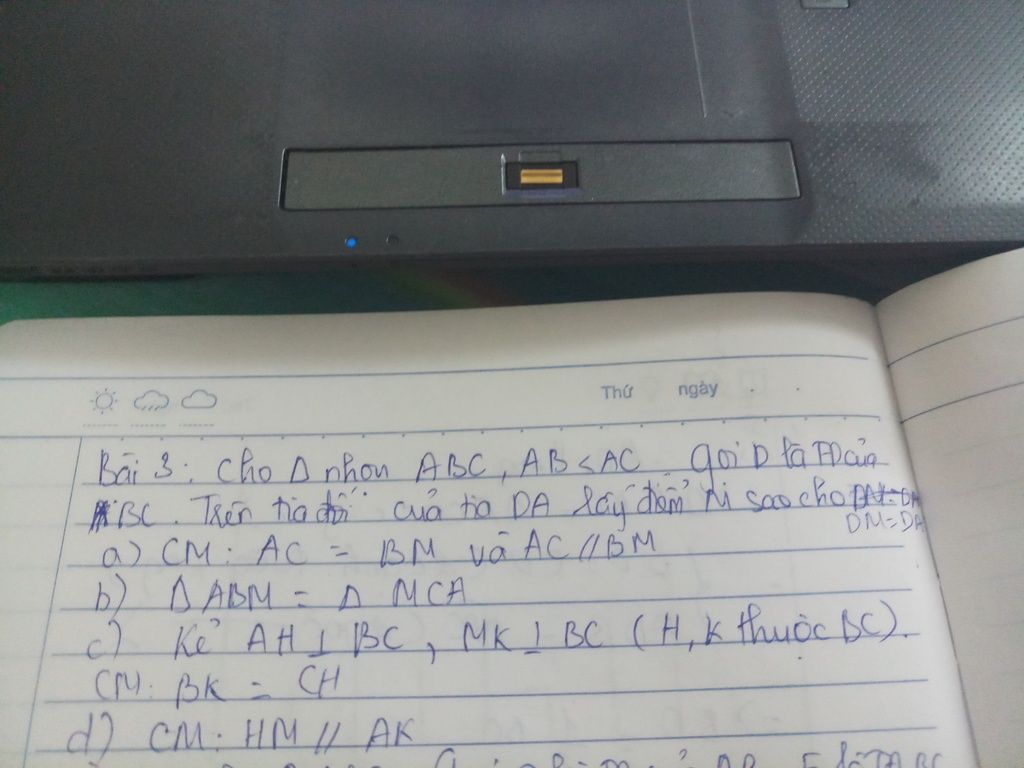 Thứ ngày
Bài 3: Cho Δ nhọn ABC, AB < AC. Gọi D là TĐ của
BC. Trên tia đối của tia DA lấy điểm M sao cho
DM = DA
a) CM: AC = BM và AC // BM
b) Δ ABM = Δ MCA
c) Kẻ AH ⊥ BC, MK ⊥ BC (H, K thuộc BC).
CM: BK = CH
d) CM: HM // AK